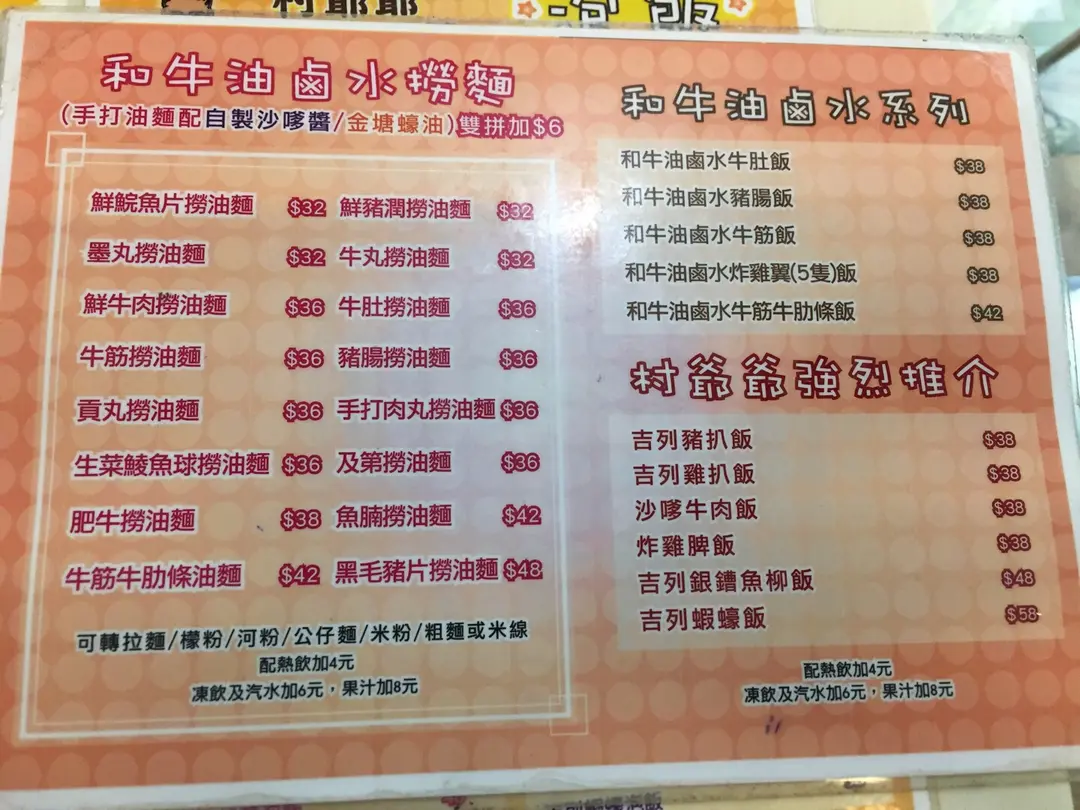 村爺爺
和牛油鹵水撈麵
(手打油麵配自製沙嗲醬/金塘蠔油)雙拼加$6
鮮鯇魚片撈油麵 $32 鮮豬潤撈油麵 $32
墨丸撈油麵 $32 牛丸撈油麵 $32
鮮牛肉撈油麵 $36 牛肚撈油麵 $36
牛筋撈油麵 $36 豬腸撈油麵 $36
貢丸撈油麵 $36 手打肉丸撈油麵 $36
生菜鯪魚球撈油麵 $36 及第撈油麵 $36
肥牛撈油麵 $38 魚腩撈油麵 $42
牛筋牛肋條油麵 $42 黑毛豬片撈油麵 $48
可轉拉麵/檬粉/河粉/公仔麵/米粉/粗麵或米線
配熱飲加4元
凍飲及汽水加6元，果汁加8元
和牛油鹵水系列
和牛油鹵水牛肚飯 $38
和牛油鹵水豬腸飯 $38
和牛油鹵水牛筋飯 $38
和牛油鹵水炸雞翼(5隻)飯 $38
和牛油鹵水牛筋牛肋條飯 $42
村爺爺強烈推介
吉列豬扒飯 $38
吉列雞扒飯 $38
沙嗲牛肉飯 $38
炸雞脾飯 $38
吉列銀鱈魚柳飯 $48
吉列蝦蠔飯 $58
配熱飲加4元
凍飲及汽水加6元，果汁加8元